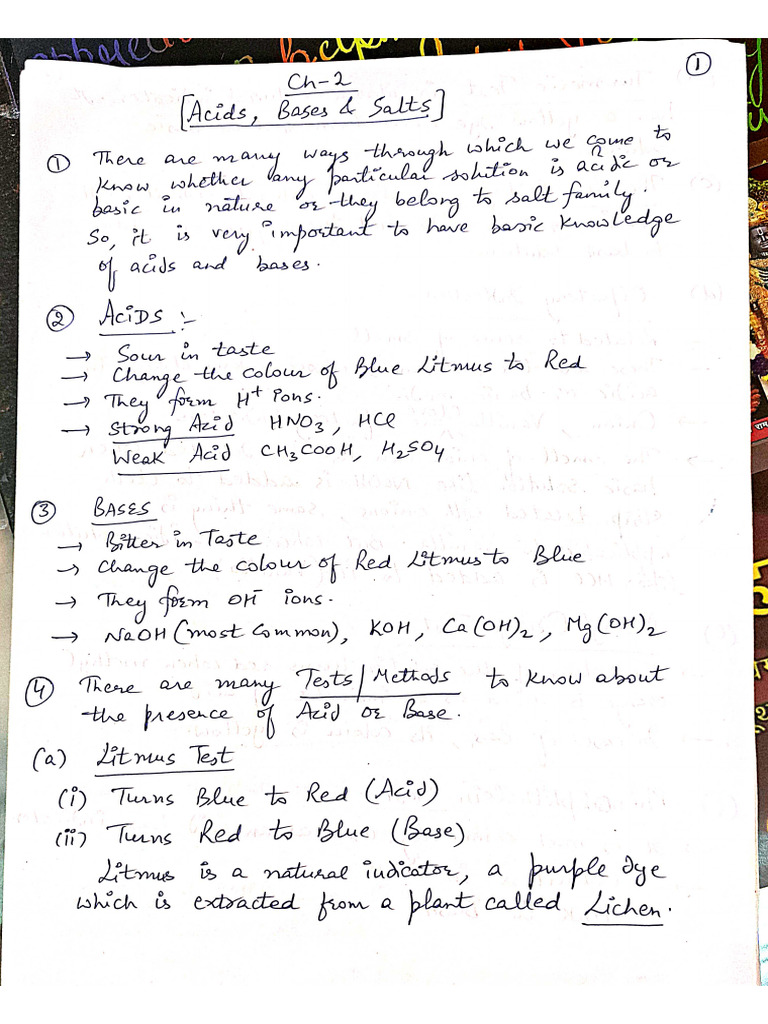 ①
Ch-2
[Acids, Bases & Salts]
① There are many ways through which we come to
know whether any particular solution is acidic or
basic in nature or they belong to salt family.
So, it is very important to have basic knowledge
of acids and bases.
② ACIDS :-
→ Sour in taste
→ Change the colour of Blue Litmus to Red
→ They form H⁺ ions.
→ Strong Acid HNO₃, HCl
Weak Acid CH₃COOH, H₂SO₄
③ BASES
→ Bitter in Taste
→ Change the colour of Red Litmus to Blue
→ They form OH⁻ ions.
→ NaOH (most common), KOH, Ca(OH)₂, Mg(OH)₂
④ There are many Tests/Methods to know about
the presence of Acid or Base.
(a) Litmus Test
(i) Turns Blue to Red (Acid)
(ii) Turns Red to Blue (Base)
Litmus is a natural indicator, a purple dye
which is extracted from a plant called Lichen.